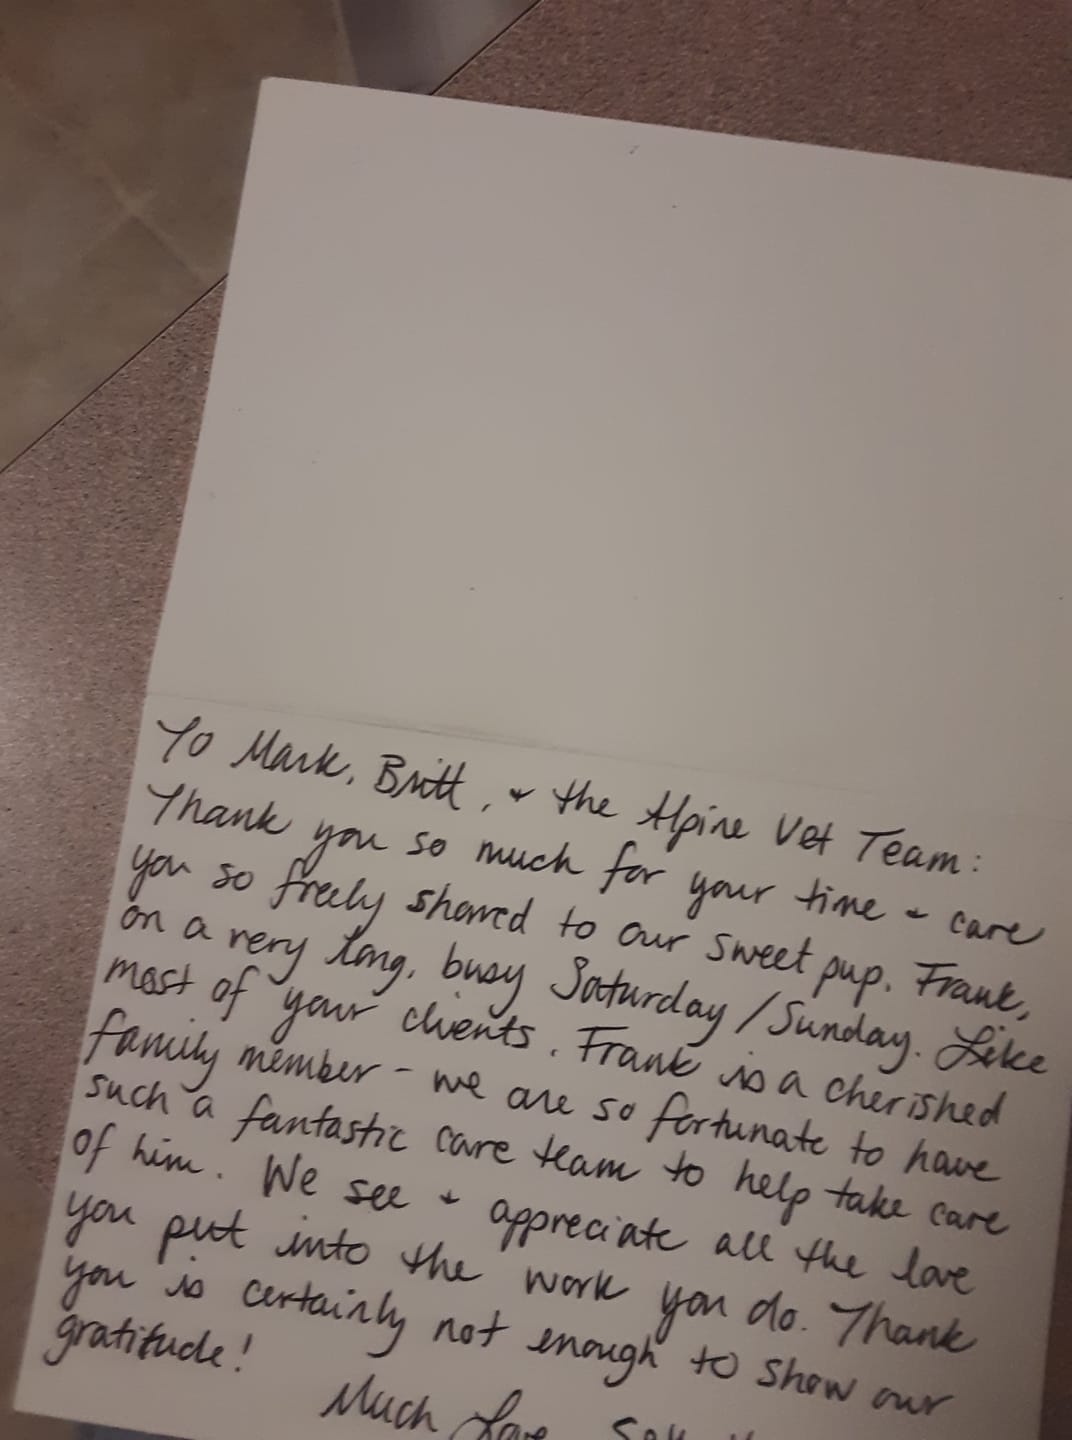 To Mark, Britt, + the Alpine Vet Team:
Thank you so much for your time + care
you so freely showed to our sweet pup, Frank,
on a very long, busy Saturday/Sunday. Like
most of your clients, Frank is a cherished
family member - we are so fortunate to have
such a fantastic care team to help take care
of him. We see + appreciate all the love
you put into the work you do. Thank
you is certainly not enough to show our
gratitude!
Much Love